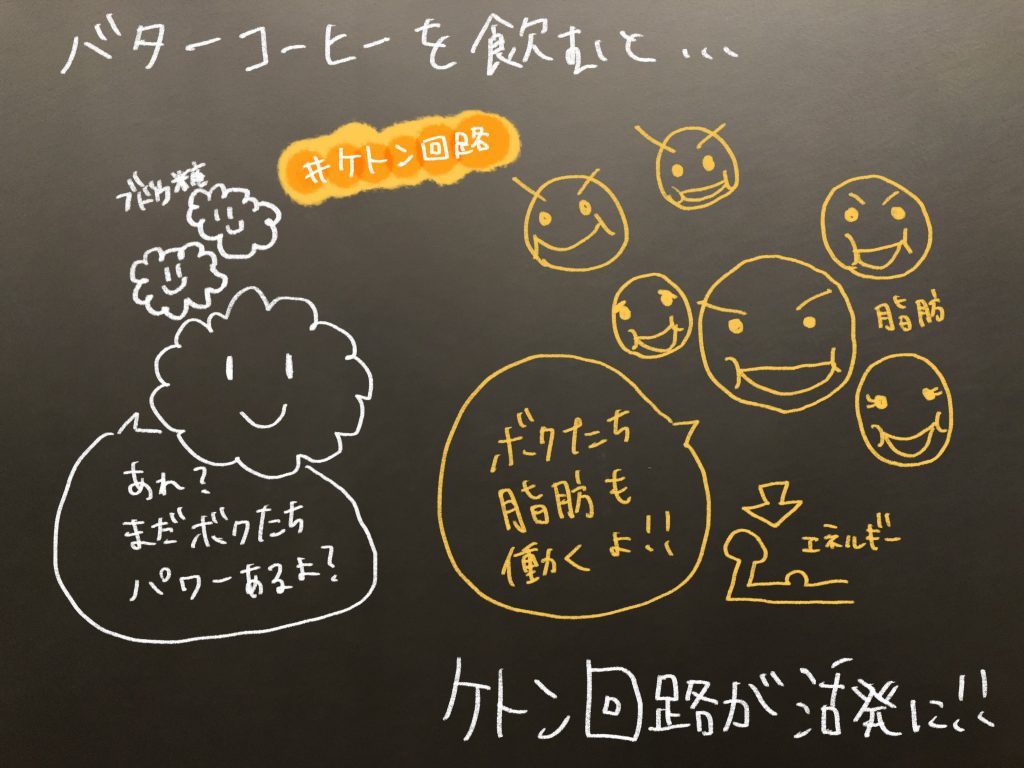 バターコーヒーを飲むと...
#ケトン回路
ブドウ糖
脂肪
あれ?
まだボクたち
パワーあるよ?
ボクたち
脂肪も
働くよ!!
エネルギー
ケトン回路が活発に!!